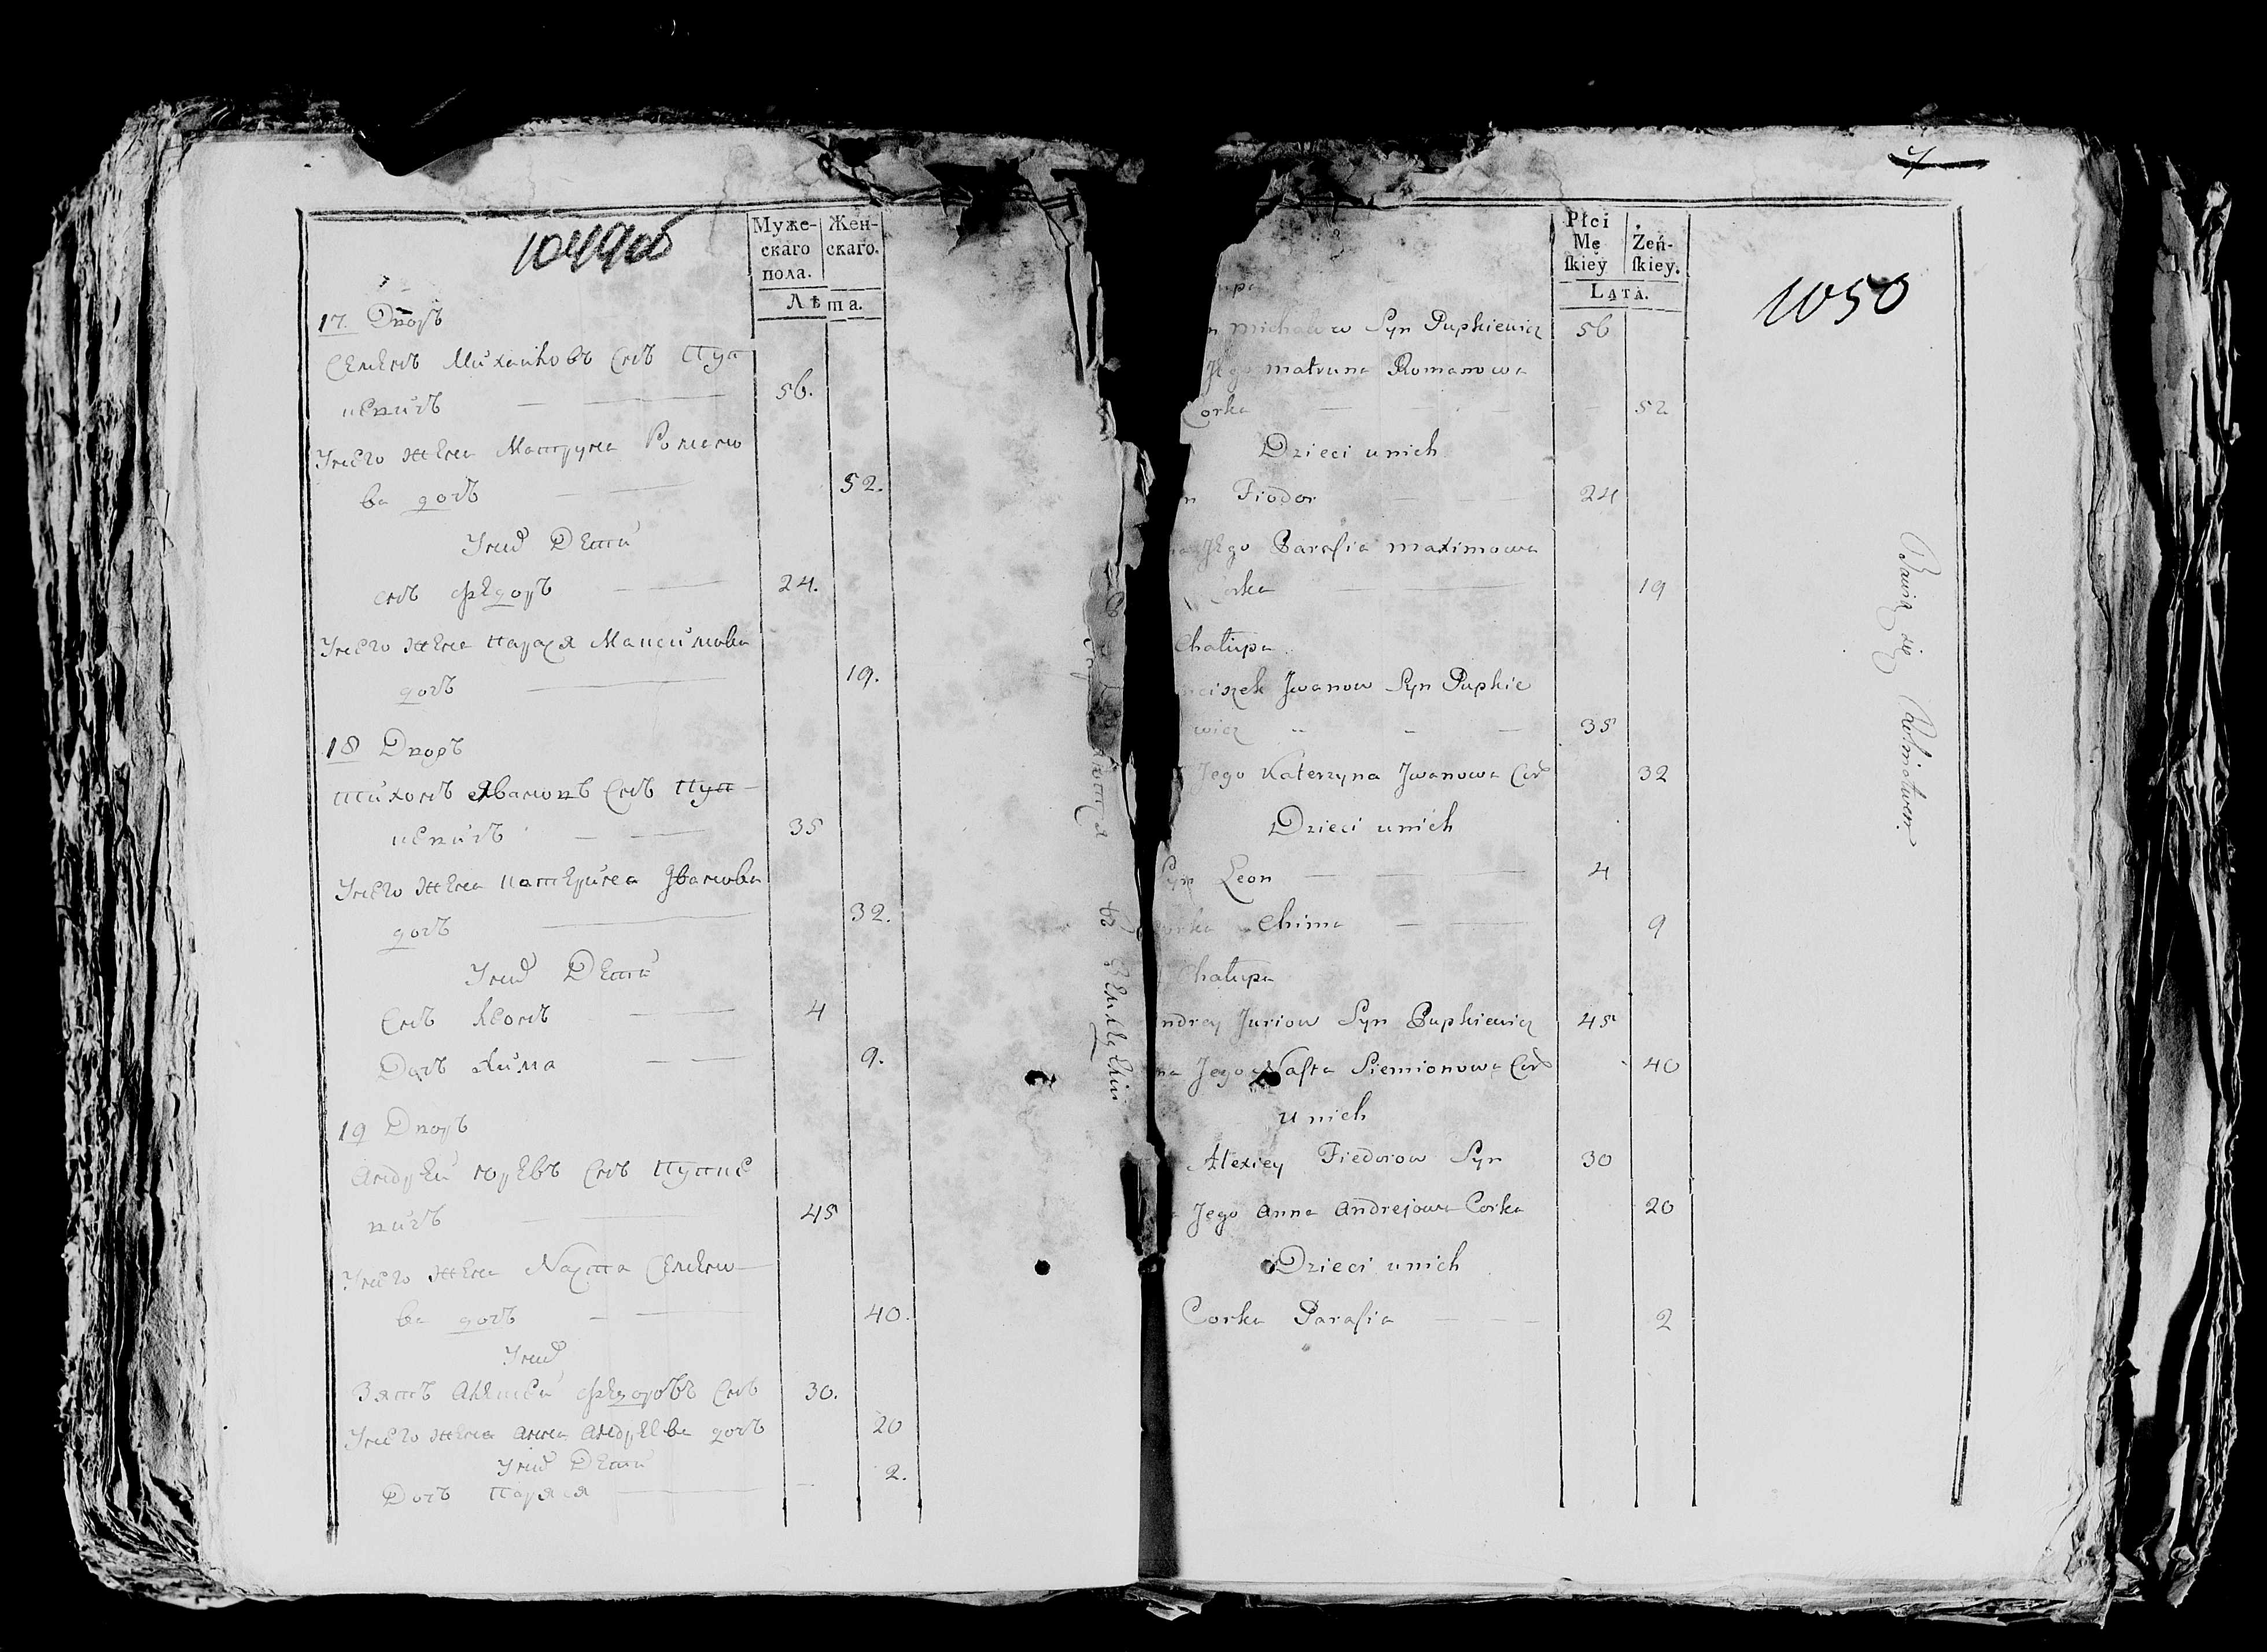 1049об
Муже-
скаго
пола.
Жен-
скаго.
Лѣта.
17. Дворъ
Семенъ Михайловъ Снъ Пуп
кевичъ 56.
У него жена Матруна Романо
ва дочь 52.
У нихъ Дети
снъ Федоръ 24.
У него жена Парася Максимова
дочь 19.
18 Дворъ
Тихонъ Ивановъ Снъ Пуп
кевичъ 35
У него жена Катерина Иванова
дочь 32.
У нихъ Дети
Снъ Леонъ 4
Дочь Хима 9.
19 Дворъ
Андрей Юревъ Снъ Пупке
вичъ 45
У него жена Наста Семено
ва дочь 40.
У нихъ
Зять Алексей Федоровъ Снъ 30.
У него жена Анна Андреева дочь 20
У нихъ Дети
Дочь Парася 2.
Płci
Mę
ſkiey
Żeń-
ſkiey.
Lata.
1050
Michałow Syn Pupkiewicz 56
Jego Matruna Romanowa
Corka 52
Dzieci u nich
Fiodor 24
Jego Parasia Maximowa
Corka 19
Chałupa
Jwanow Syn Pupkie
wicz 35
Jego Katerzyna Jwanowa Cor 32
Dzieci u nich
Syn Leon 4
Corka Chima 9
Chałupa
ndrey Juriow Syn Pupkiewicz 45
na Jego Nasta Siemionowa Cor 40
u nich
Alexiey Fiedorow Syn 30
Jego Anna Andrejowa Corka 20
Dzieci u nich
Corka Parasia 2
Bawią się Rolnictwem.